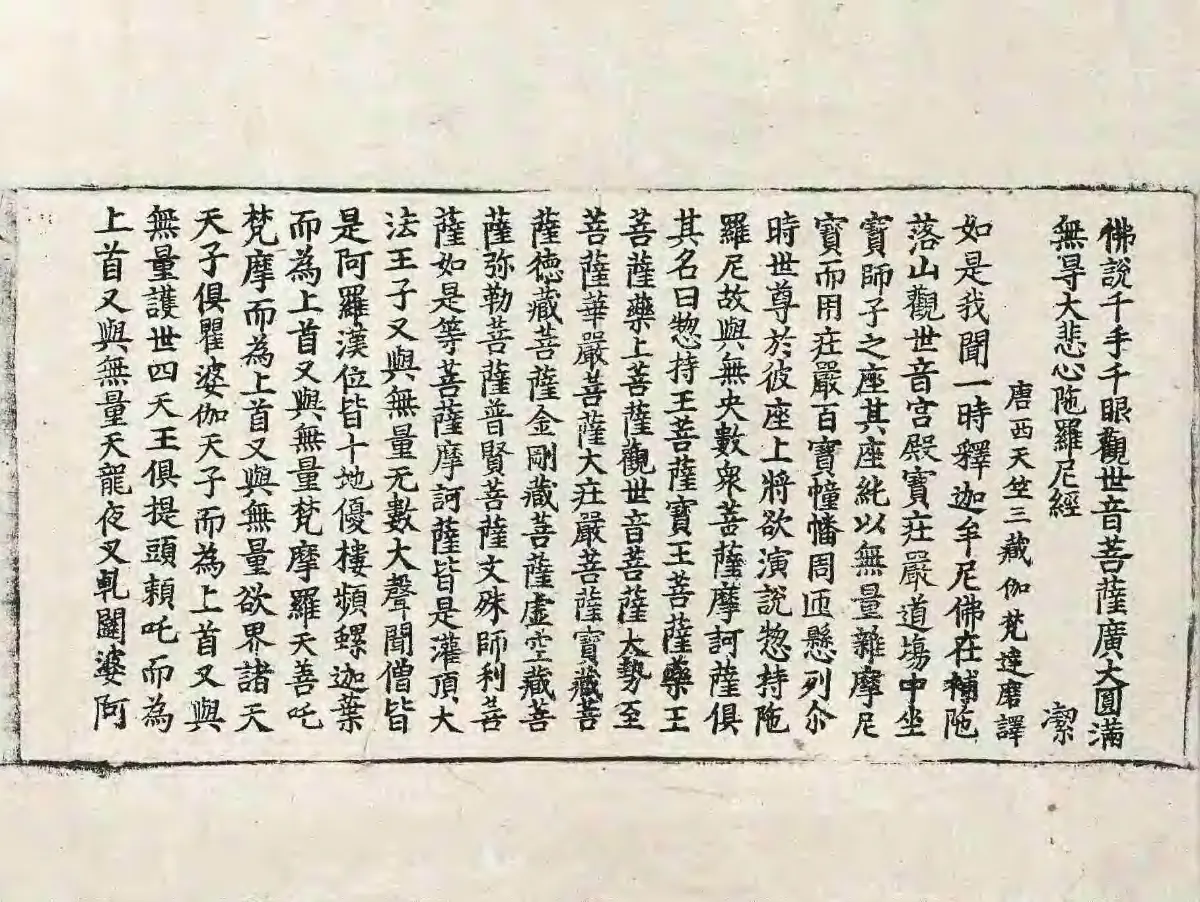 佛說千手千眼觀世音菩薩廣大圓滿
無㝵大悲心陁羅尼經 潔
唐西天竺三藏伽梵達磨譯
如是我聞一時釋迦牟尼佛在補陁
落山觀世音宮殿寶莊嚴道場中坐
寶師子之座其座純以無量雜摩尼
寶而用莊嚴百寶幢幡周迊懸列尒
時世尊於彼座上將欲演說惣持陁
羅尼故與無央數衆菩薩摩訶薩俱
其名曰惣持王菩薩寶王菩薩藥王
菩薩藥上菩薩觀世音菩薩大勢至
菩薩華嚴菩薩大莊嚴菩薩寶藏菩
薩德藏菩薩金剛藏菩薩虛空藏菩
薩弥勒菩薩普賢菩薩文殊師利菩
薩如是等菩薩摩訶薩皆是灌頂大
法王子又與無量无數大聲聞僧皆
是阿羅漢位皆十地優樓頻螺迦葉
而為上首又與無量梵摩羅天善吒
梵摩而為上首又與無量欲界諸天
天子俱瞿婆伽天子而為上首又與
無量護世四天王俱提頭賴吒而為
上首又與無量天龍夜叉乹闥婆阿